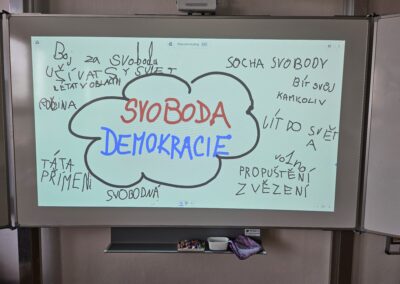 Boj za svobodu
UŽÍVAT SI SVĚT
LÉTAT V OBLACÍCH
RODINA
SVOBODA
DEMOKRACIE
TÁTA
PŘÍMENÍ
SVOBODNÁ
SOCHA SVOBODY
BÍT SVŮJ
KAMKOLIV
LÍT DO SVĚT
A
volno
PROPUŠTĚNÍ
Z VĚZENÍ